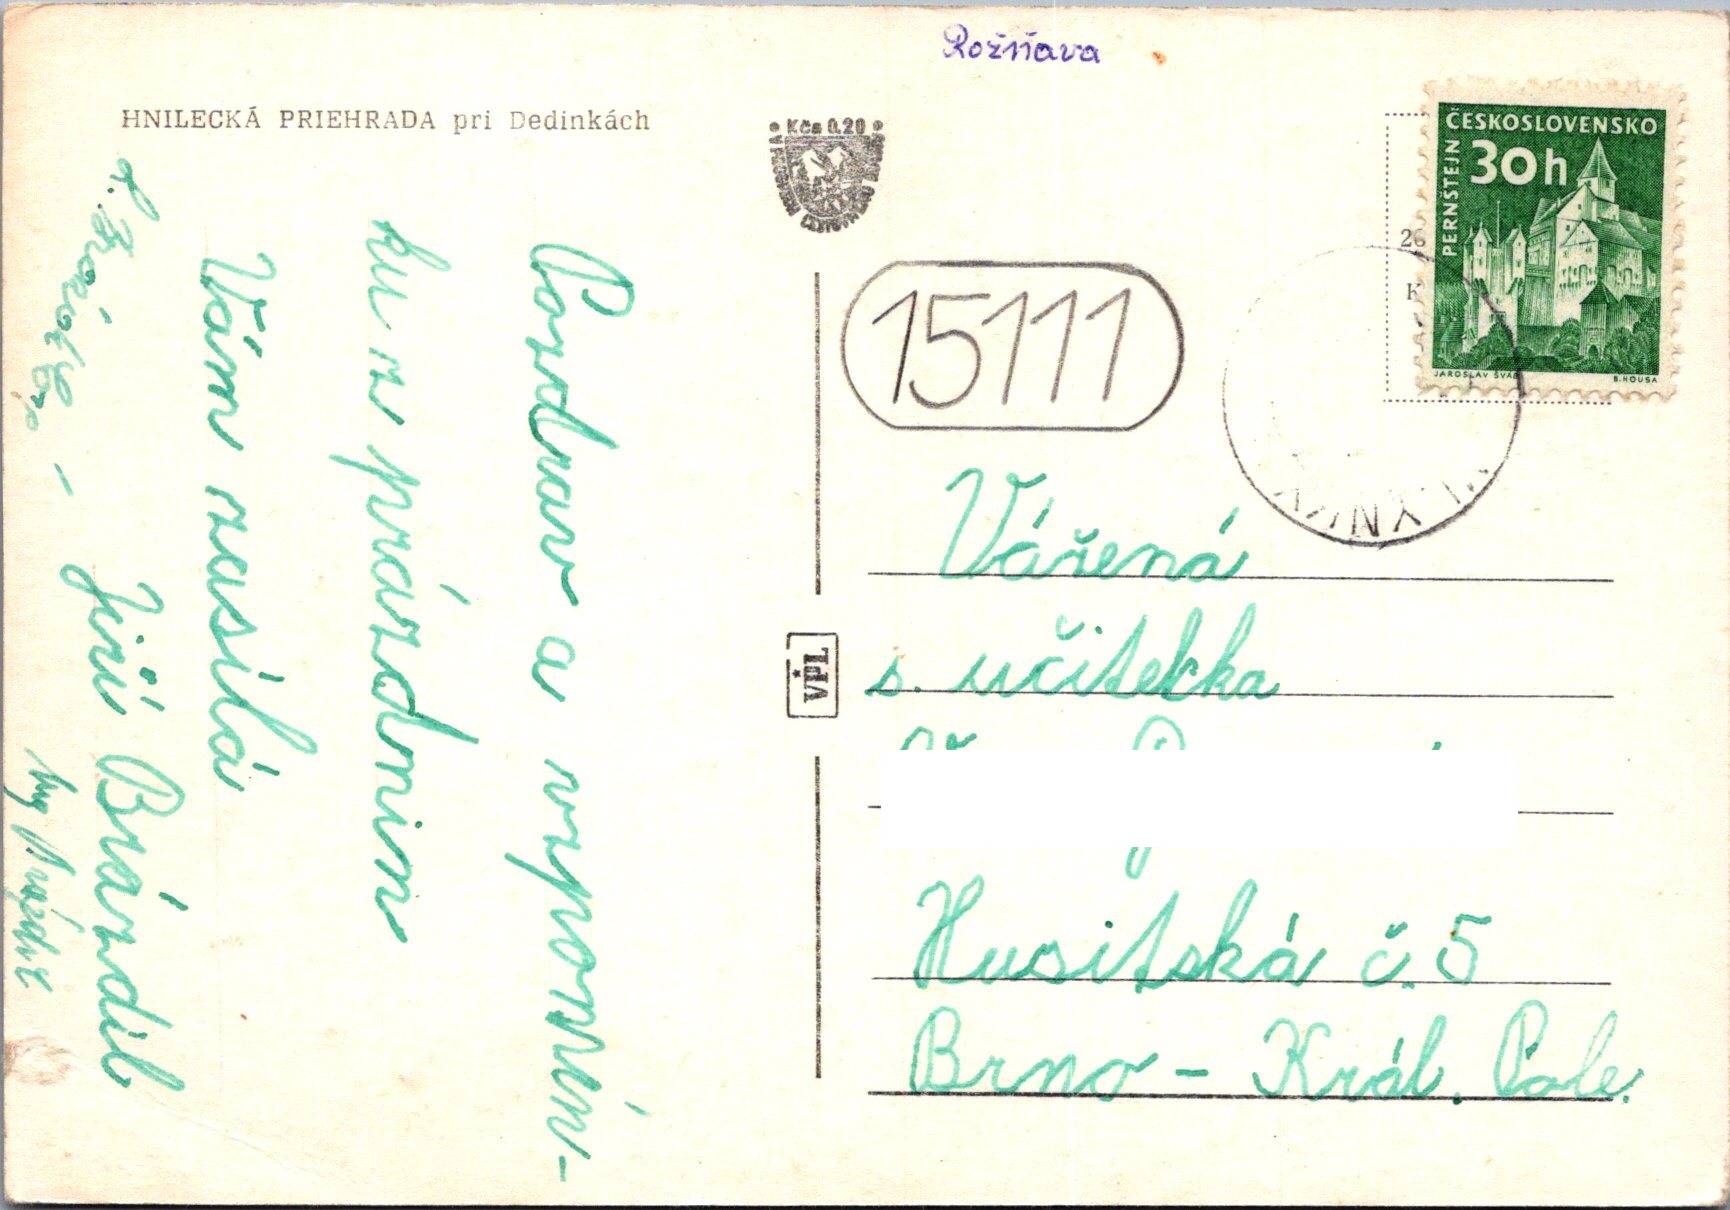 Rožňava
HNILECKÁ PRIEHRADA pri Dedinkách
Kčs 0,20
ČESKOSLOVENSKO
30h
PERNŠTEJN
JAROSLAV ŠVÁB
B. HOUSA
26
K
15111
VPL
Pozdrav a vzpomín-
ku z prázdnin
Vám zasílá
Jiří Brázdil
Vážená
s. učitelka
Husitská č. 5
Brno - Král. Pole.